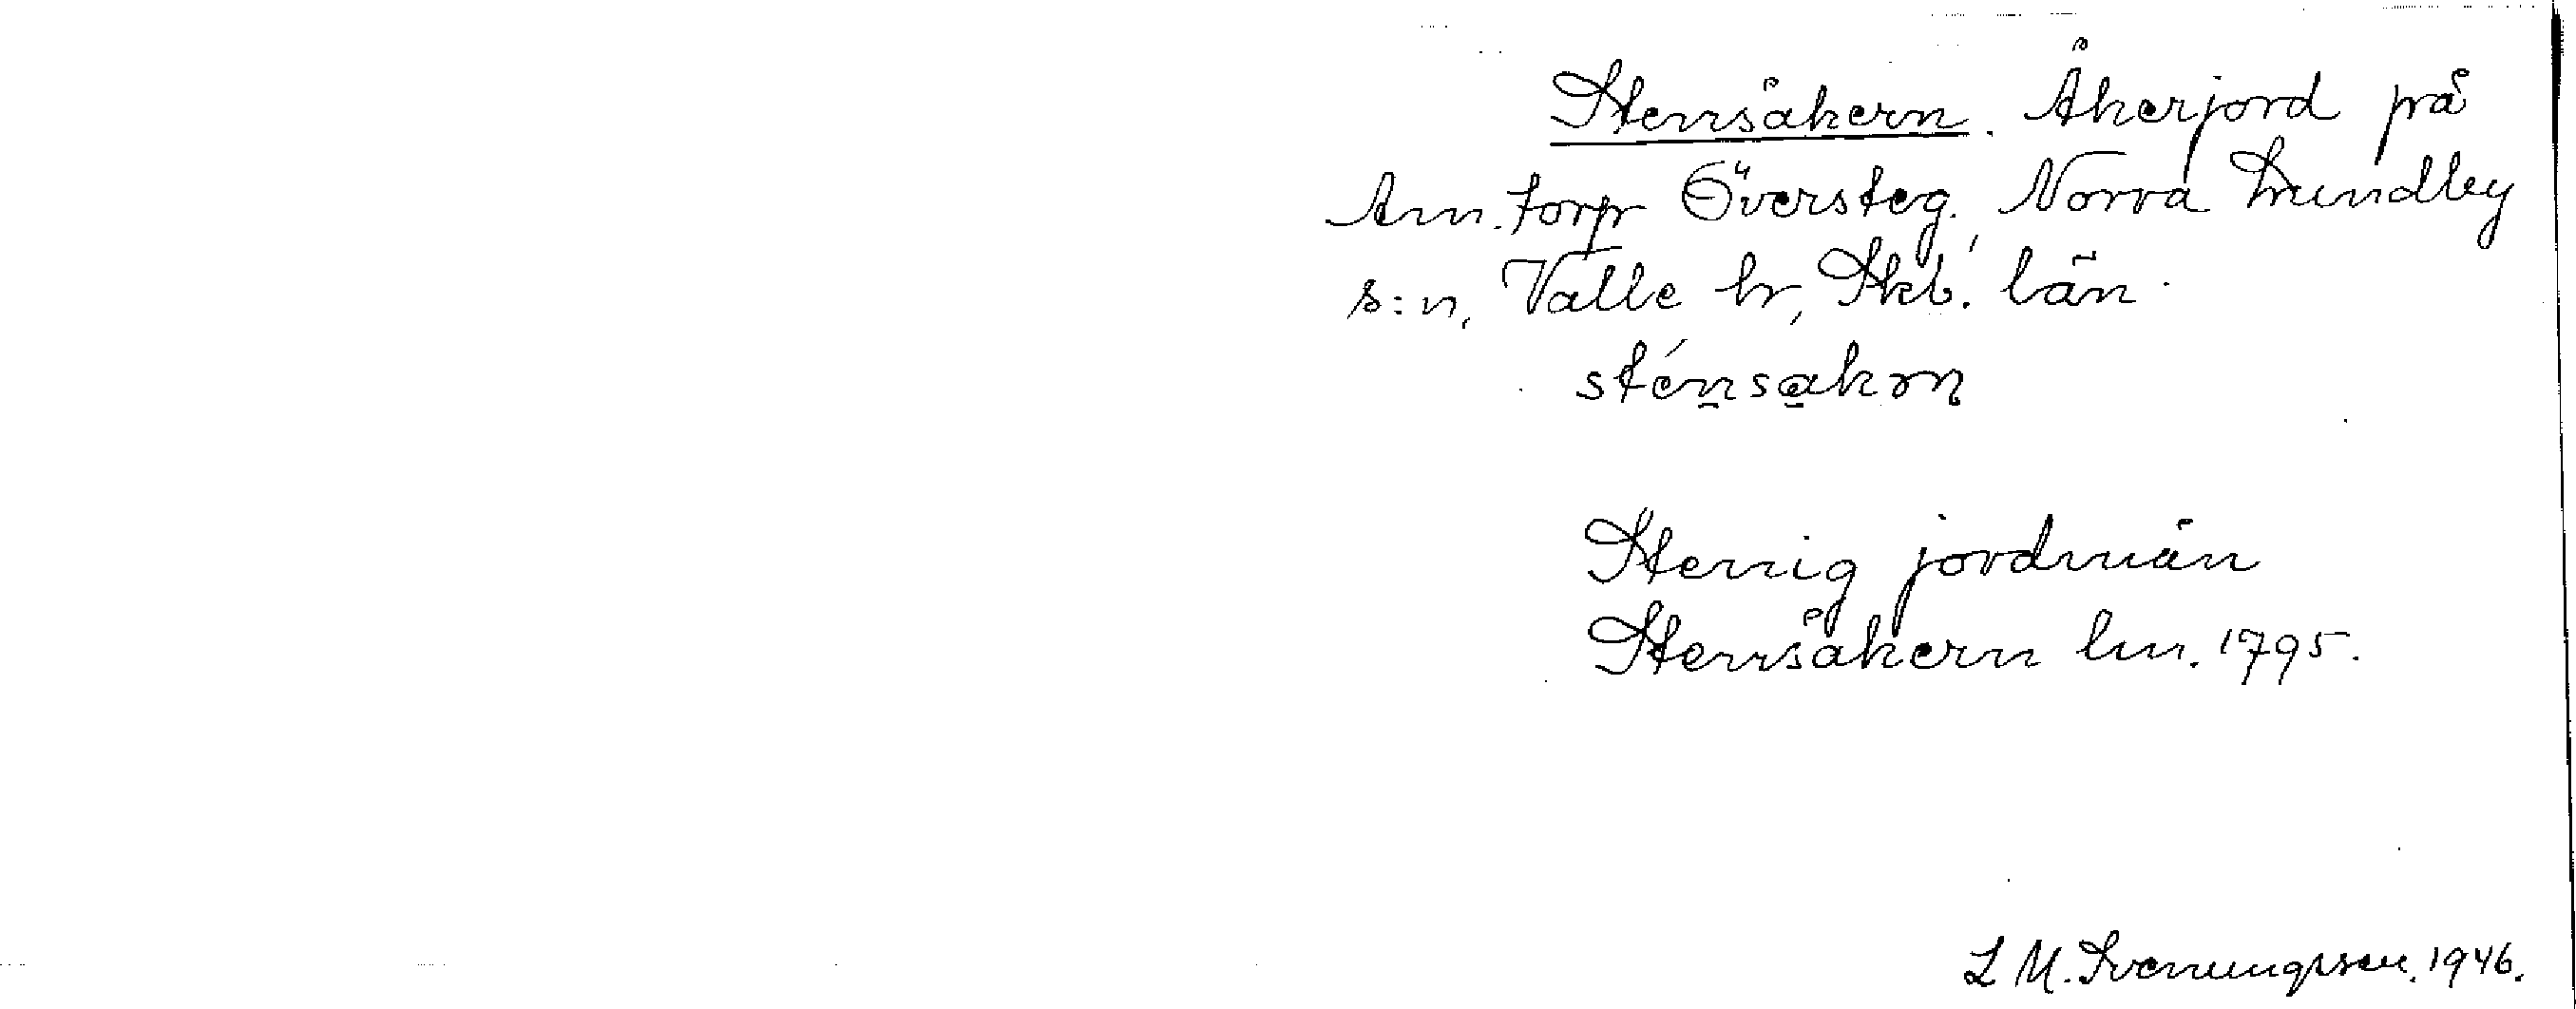 Stensåkern. Åkerjord på
Ann. torp Översteg., Norra Lundby
s:n, Valle hr, Skb. län.
sténsakrn
Stenig jordmån
Stensåkern lm. 1795.
L M. Svenungsson. 1946.